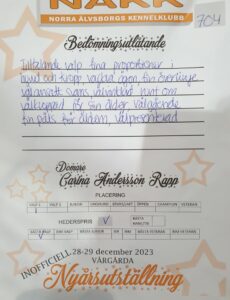 NAKK
NORRA ÄLVSBORGS KENNELKLUBB
704
Bedömningsutlåtande
Tilltalande valp fina proportioner i
huvud och kropp, vackra ögon, fin överlinje
välansatt svans, välvinklad runt om
välkroppad för sin ålder välgående
fin päls för åldern, välpresenterad
Domare
Carina Andersson Rapp
PLACERING
VALP 1 VALP 2 JUNIOR UNGHUND BRUKS/JAKT ÖPPEN CHAMPION VETERAN
HEDERSPRIS V BÄSTA
BÄSTA VALP BIM VALP BÄSTA JUNIOR BIR BIM BIR VETERAN BIM VETERAN
INOFFICIELL 28-29 december 2023
VÅRGÅRDA
Nyårsutställning